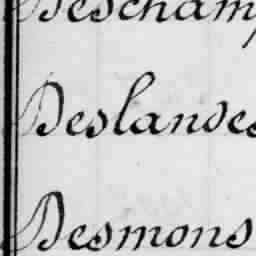 Deschamp
Deslandes
Desmons